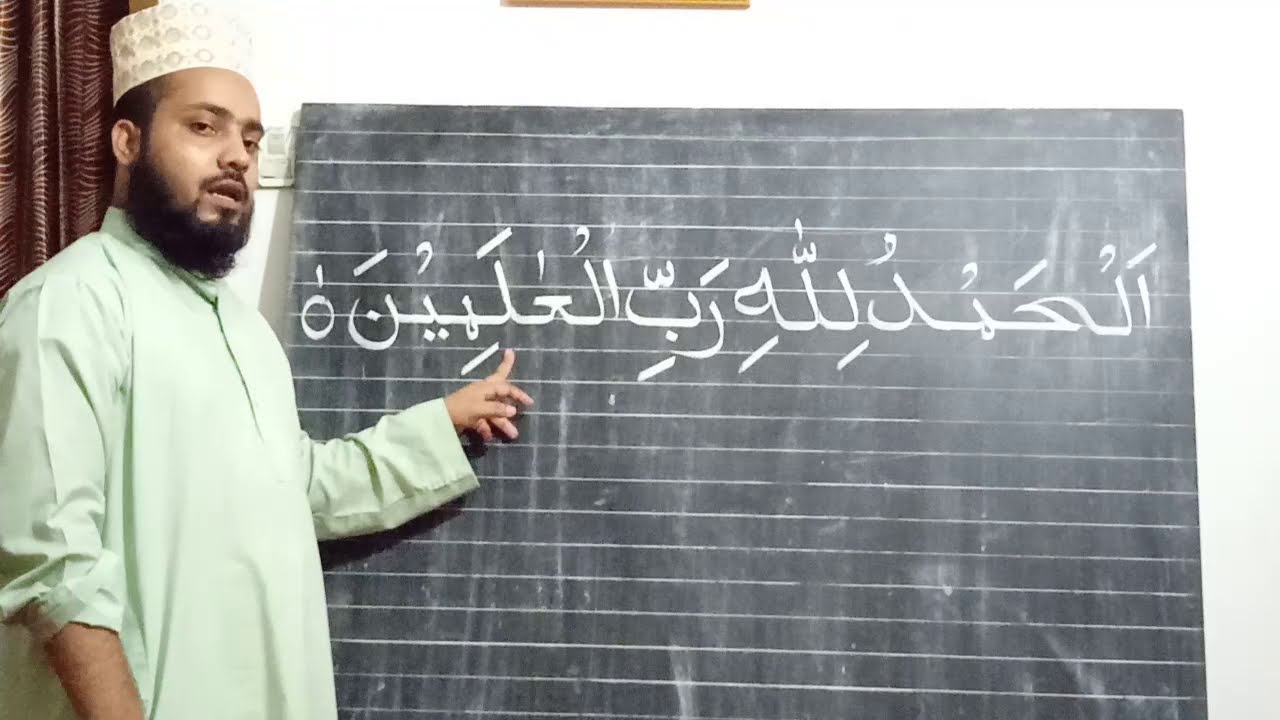 اَلْحَمْدُ لِلّٰهِ رَبِّ الْعٰلَمِيْنَ ۙ